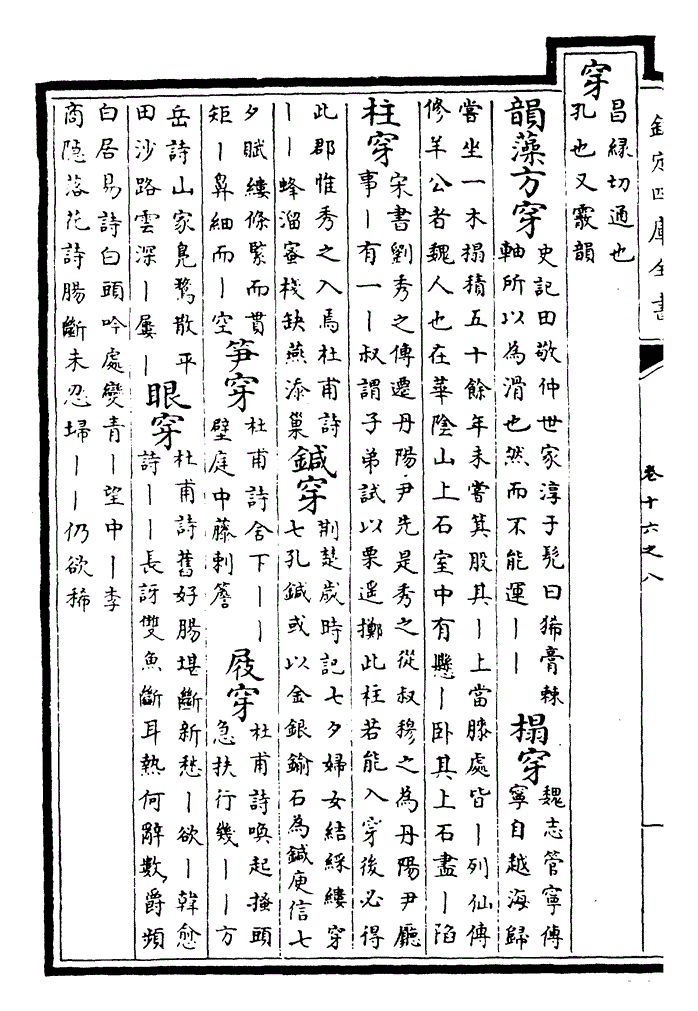 欽定四庫全書
卷十六之八
穿
昌緣切通也
孔也又霰韻
韻藻方穿
史記田敬仲世家淳于髡曰狶膏棘
軸所以為滑也然而不能運丨丨
榻穿
魏志管寧傳
寧自越海歸
嘗坐一木榻積五十餘年未嘗箕股其丨上當膝處皆丨列仙傳
修羊公者魏人也在華陰山上石室中有懸丨卧其上石盡丨陷
柱穿
宋書劉秀之傳遷丹陽尹先是秀之從叔穆之為丹陽尹廳
事丨有一丨叔謂子弟試以栗遥擲此柱若能入穿後必得
此郡惟秀之入焉杜甫詩
丨丨蜂溜蜜棧缺燕添巢
鍼穿
荆楚歲時記七夕婦女結綵縷穿
七孔鍼或以金銀鍮石為鍼庾信七
夕賦縷條緊而貫
矩丨鼻細而丨空
笋穿
杜甫詩舍下丨丨
壁庭中藤刺簷
屐穿
杜甫詩喚起搔頭
急扶行幾丨丨方
岳詩山家鳧鶩散平
田沙路雲深丨屢丨
眼穿
杜甫詩舊好腸堪斷新愁丨欲丨韓愈
詩丨丨長訝雙魚斷耳熱何辭數爵頻
白居易詩白頭吟處變青丨望中丨李
商隐落花詩腸斷未忍埽丨丨仍欲稀